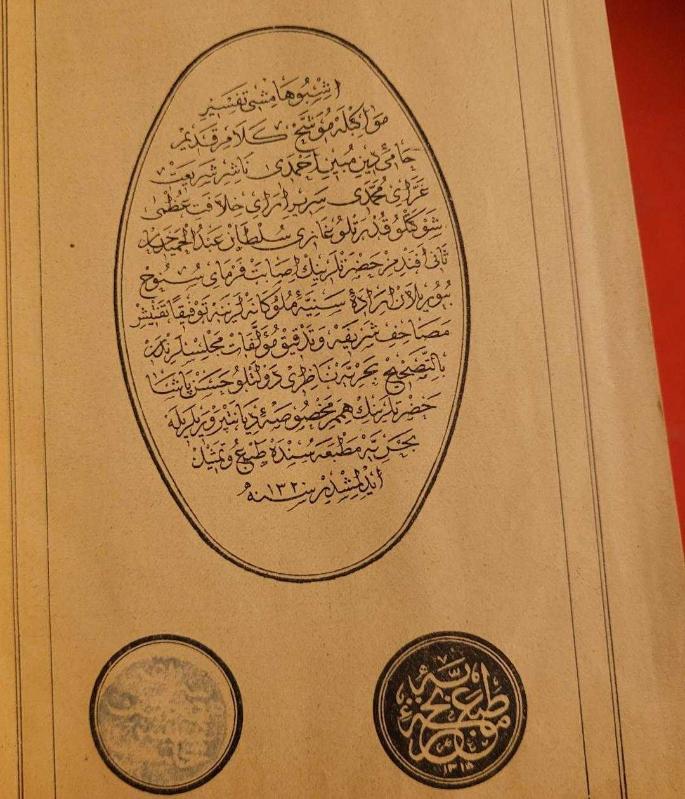 اشبو هامشی تفسیر
مواکبله موشح کلام قدیم
حامئ دین مبین احمدی ناشر شریعت
غرای محمدی سریر ارای خلافت عظمی
شوکتلو قدرتلو غازی سلطان عبدالحمید خان
ثانی افندمز حضرتلرینك اصابت فرمای سنوح
بیوریلان ارادۀ سنیۀ ملوکانه لرینه توفیقا تفتیش
مصاحف شریفه و تدقیق مؤلفات مجلسلرندن
بالتصحیح بحریه ناظری دولتلو حسن پاشا
حضرتلرینك همم مخصوصۀ دیانتپروریلریله
بحریه مطبعه سنده طبع و تمثیل
ایدلمشدر سنه ١٣٢٠
مطبعۀ بحریه